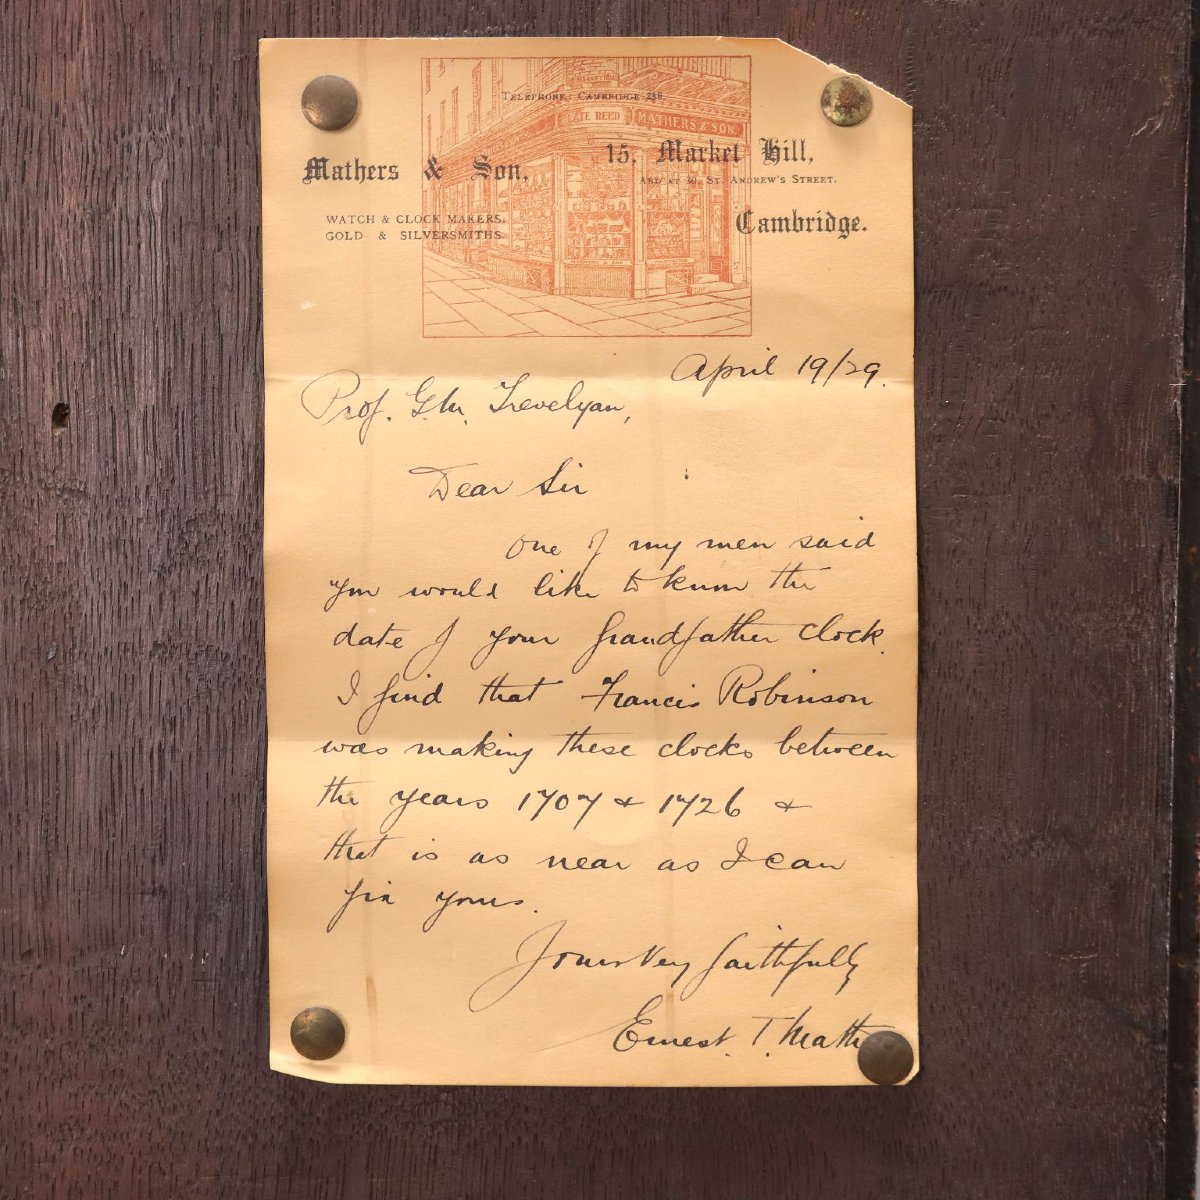 TELEPHONE: CAMBRIDGE 288.
TE REED
MATHERS & SON.
Mathers & Son,
15, Market Hill,
AND AT 30, ST. ANDREW'S STREET.
WATCH & CLOCK MAKERS.
GOLD & SILVERSMITHS.
Cambridge.
April 19/29.
Prof. G.M. Trevelyan,
Dear Sir
One of my men said
you would like to know the
date of your grandfather clock.
I find that Francis Robinson
was making these clocks between
the years 1707 & 1726 &
that is as near as I can
fix yours.
Yours Very faithfully
Ernest. T. Mathe